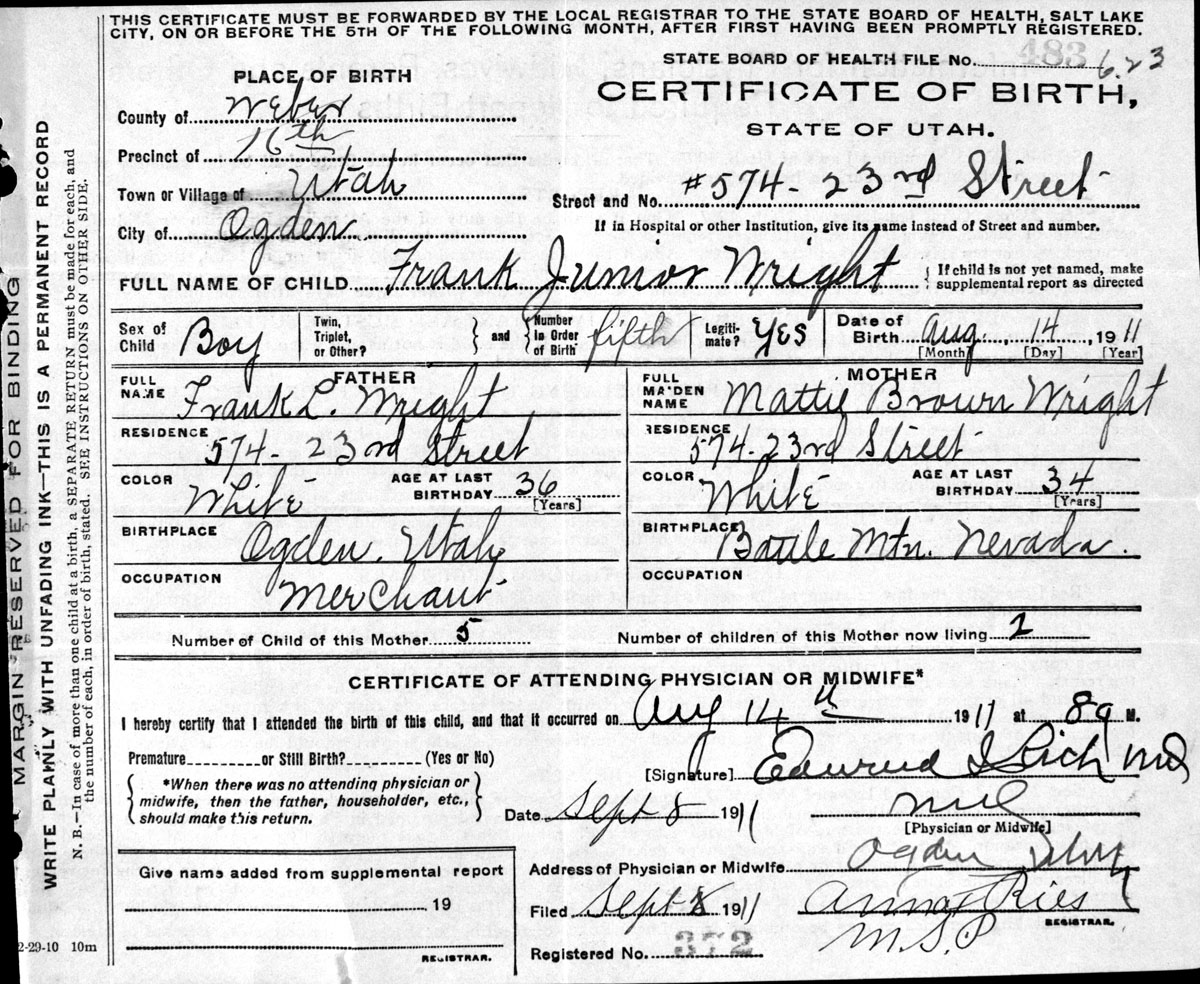 THIS CERTIFICATE MUST BE FORWARDED BY THE LOCAL REGISTRAR TO THE STATE BOARD OF HEALTH, SALT LAKE
CITY, ON OR BEFORE THE 5TH OF THE FOLLOWING MONTH, AFTER FIRST HAVING BEEN PROMPTLY REGISTERED.
MARGIN RESERVED FOR BINDING
WRITE PLAINLY WITH UNFADING INK—THIS IS A PERMANENT RECORD
N. B.—In case of more than one child at a birth, a SEPARATE RETURN must be made for each, and
the number of each, in order of birth, stated. SEE INSTRUCTIONS ON OTHER SIDE.
PLACE OF BIRTH
County of Weber
Precinct of 16th
Town or Village of Utah
City of Ogden
STATE BOARD OF HEALTH FILE No. 483 623
CERTIFICATE OF BIRTH,
STATE OF UTAH.
Street and No. #574 - 23rd Street
If in Hospital or other Institution, give its name instead of Street and number.
FULL NAME OF CHILD Frank Junior Wright { If child is not yet named, make
supplemental report as directed
Sex of Child Boy
Twin, Triplet, or Other? } and { Number in Order of Birth fifth
Legiti-mate? YES
Date of Birth Aug 14, 1911
[Month] [Day] [Year]
FATHER
FULL NAME Frank L. Wright
RESIDENCE 574 - 23rd Street
COLOR White AGE AT LAST BIRTHDAY 36 [Years]
BIRTHPLACE Ogden, Utah
OCCUPATION Merchant
MOTHER
FULL MAIDEN NAME Mattie Brown Wright
RESIDENCE 574 - 23rd Street
COLOR White AGE AT LAST BIRTHDAY 34 [Years]
BIRTHPLACE Battle Mtn. Nevada.
OCCUPATION
Number of Child of this Mother 5 Number of children of this Mother now living 2
CERTIFICATE OF ATTENDING PHYSICIAN OR MIDWIFE*
I hereby certify that I attended the birth of this child, and that it occurred on Aug 14th 1911 at 8 a M.
Premature or Still Birth? (Yes or No)
{ *When there was no attending physician or
midwife, then the father, householder, etc.,
should make this return. }
[Signature] Edward I Rich md
Date Sept 8 1911 md
[Physician or Midwife]
Address of Physician or Midwife Ogden Utah
Filed Sept 8 1911 Anna F Ries
REGISTRAR.
M.S.P
Registered No. 372
Give name added from supplemental report
19
REGISTRAR.
2-29-10 10m